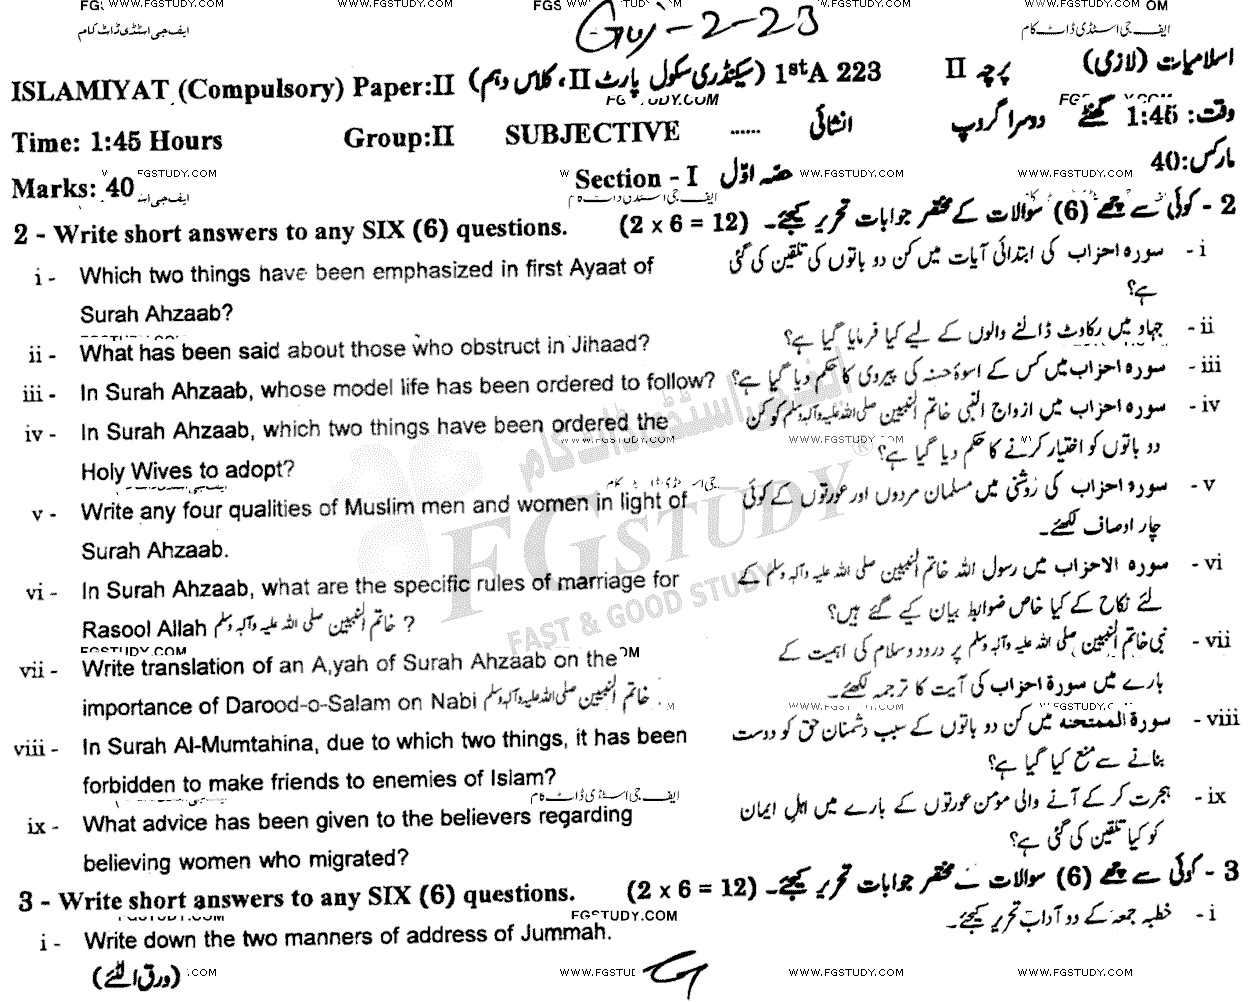 Guj-2-23
ISLAMIYAT (Compulsory) Paper:II (سیکنڈری سکول پارٹ II، کلاس دہم) 1stA 223 اسلامیات (لازمی) پرچہ II
Time: 1:45 Hours Group:II SUBJECTIVE ...... انشائی دوسرا گروپ وقت: 1:45 گھنٹے
Marks: 40 Section - I حصہ اوّل مارکس:40
2 - Write short answers to any SIX (6) questions. (2 x 6 = 12) 2 - کوئی سے چھے (6) سوالات کے مختصر جوابات تحریر کیجئے۔
i - Which two things have been emphasized in first Ayaat of i - سورہ احزاب کی ابتدائی آیات میں کن دو باتوں کی تلقین کی گئی
Surah Ahzaab? ہے؟
ii - What has been said about those who obstruct in Jihaad? ii - جہاد میں رکاوٹ ڈالنے والوں کے لیے کیا فرمایا گیا ہے؟
iii - In Surah Ahzaab, whose model life has been ordered to follow? iii - سورہ احزاب میں کس کے اسوۂ حسنہ کی پیروی کا حکم دیا گیا ہے؟
iv - In Surah Ahzaab, which two things have been ordered the iv - سورہ احزاب میں ازواج النبی خاتم النبیین صلی اللہ علیہ وآلہ وسلم کو کن
Holy Wives to adopt? دو باتوں کو اختیار کرنے کا حکم دیا گیا ہے؟
v - Write any four qualities of Muslim men and women in light of v - سورۃ احزاب کی روشنی میں مسلمان مردوں اور عورتوں کے کوئی
Surah Ahzaab. چار اوصاف لکھئے۔
vi - In Surah Ahzaab, what are the specific rules of marriage for vi - سورہ الاحزاب میں رسول اللہ خاتم النبیین صلی اللہ علیہ وآلہ وسلم کے
Rasool Allah خاتم النبیین صلی اللہ علیہ وآلہ وسلم ? لئے نکاح کے کیا خاص ضوابط بیان کیے گئے ہیں؟
vii - Write translation of an A,yah of Surah Ahzaab on the vii - نبی خاتم النبیین صلی اللہ علیہ وآلہ وسلم پر درود وسلام کی اہمیت کے
importance of Darood-o-Salam on Nabi خاتم النبیین صلی اللہ علیہ وآلہ وسلم . بارے میں سورۃ احزاب کی آیت کا ترجمہ لکھئے۔
viii - In Surah Al-Mumtahina, due to which two things, it has been viii - سورۃ الممتحنہ میں کن دو باتوں کے سبب دشمنان حق کو دوست
forbidden to make friends to enemies of Islam? بنانے سے منع کیا گیا ہے؟
ix - What advice has been given to the believers regarding ix - ہجرت کر کے آنے والی مومن عورتوں کے بارے میں اہل ایمان
believing women who migrated? کو کیا تلقین کی گئی ہے؟
3 - Write short answers to any SIX (6) questions. (2 x 6 = 12) 3 - کوئی سے چھے (6) سوالات کے مختصر جوابات تحریر کیجئے۔
i - Write down the two manners of address of Jummah. i - خطبہ جمعہ کے دو آداب تحریر کیجئے۔
(ورق الٹئے)
FGSTUDY
FAST & GOOD STUDY
WWW.FGSTUDY.COM
ایف جی اسٹڈی ڈاٹ کام